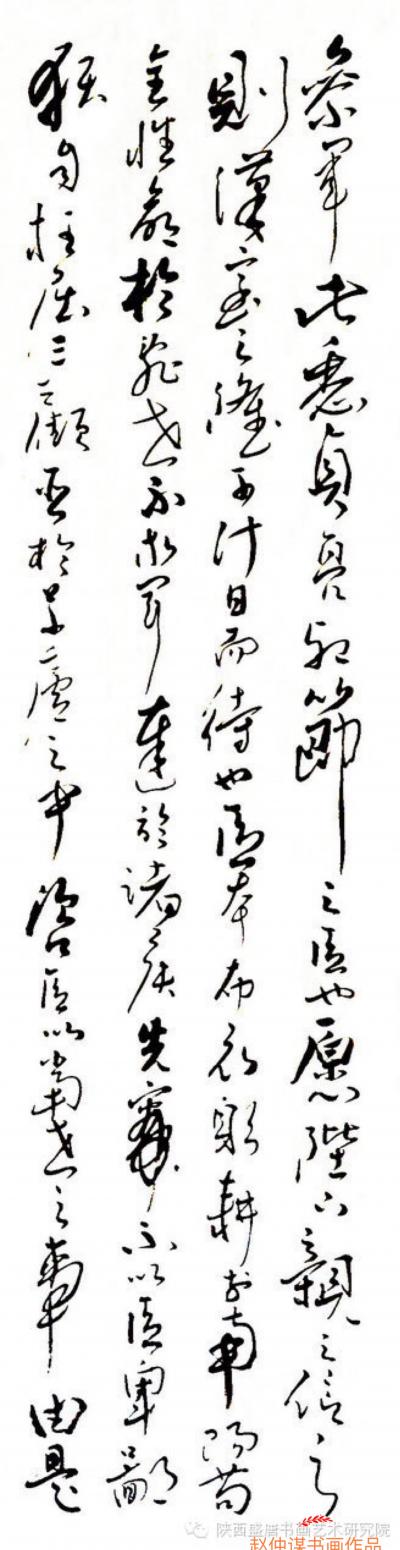 參軍此悉貞亮死節之臣也願陛下親之信之
則漢室之隆可計日而待也臣本布衣躬耕於南陽苟
全性命於亂世不求聞達於諸侯先帝不以臣卑鄙
猥自枉屈三顧臣於草廬之中諮臣以當世之事由是
陕西盛唐书画艺术研究院
赵仲谋书画作品